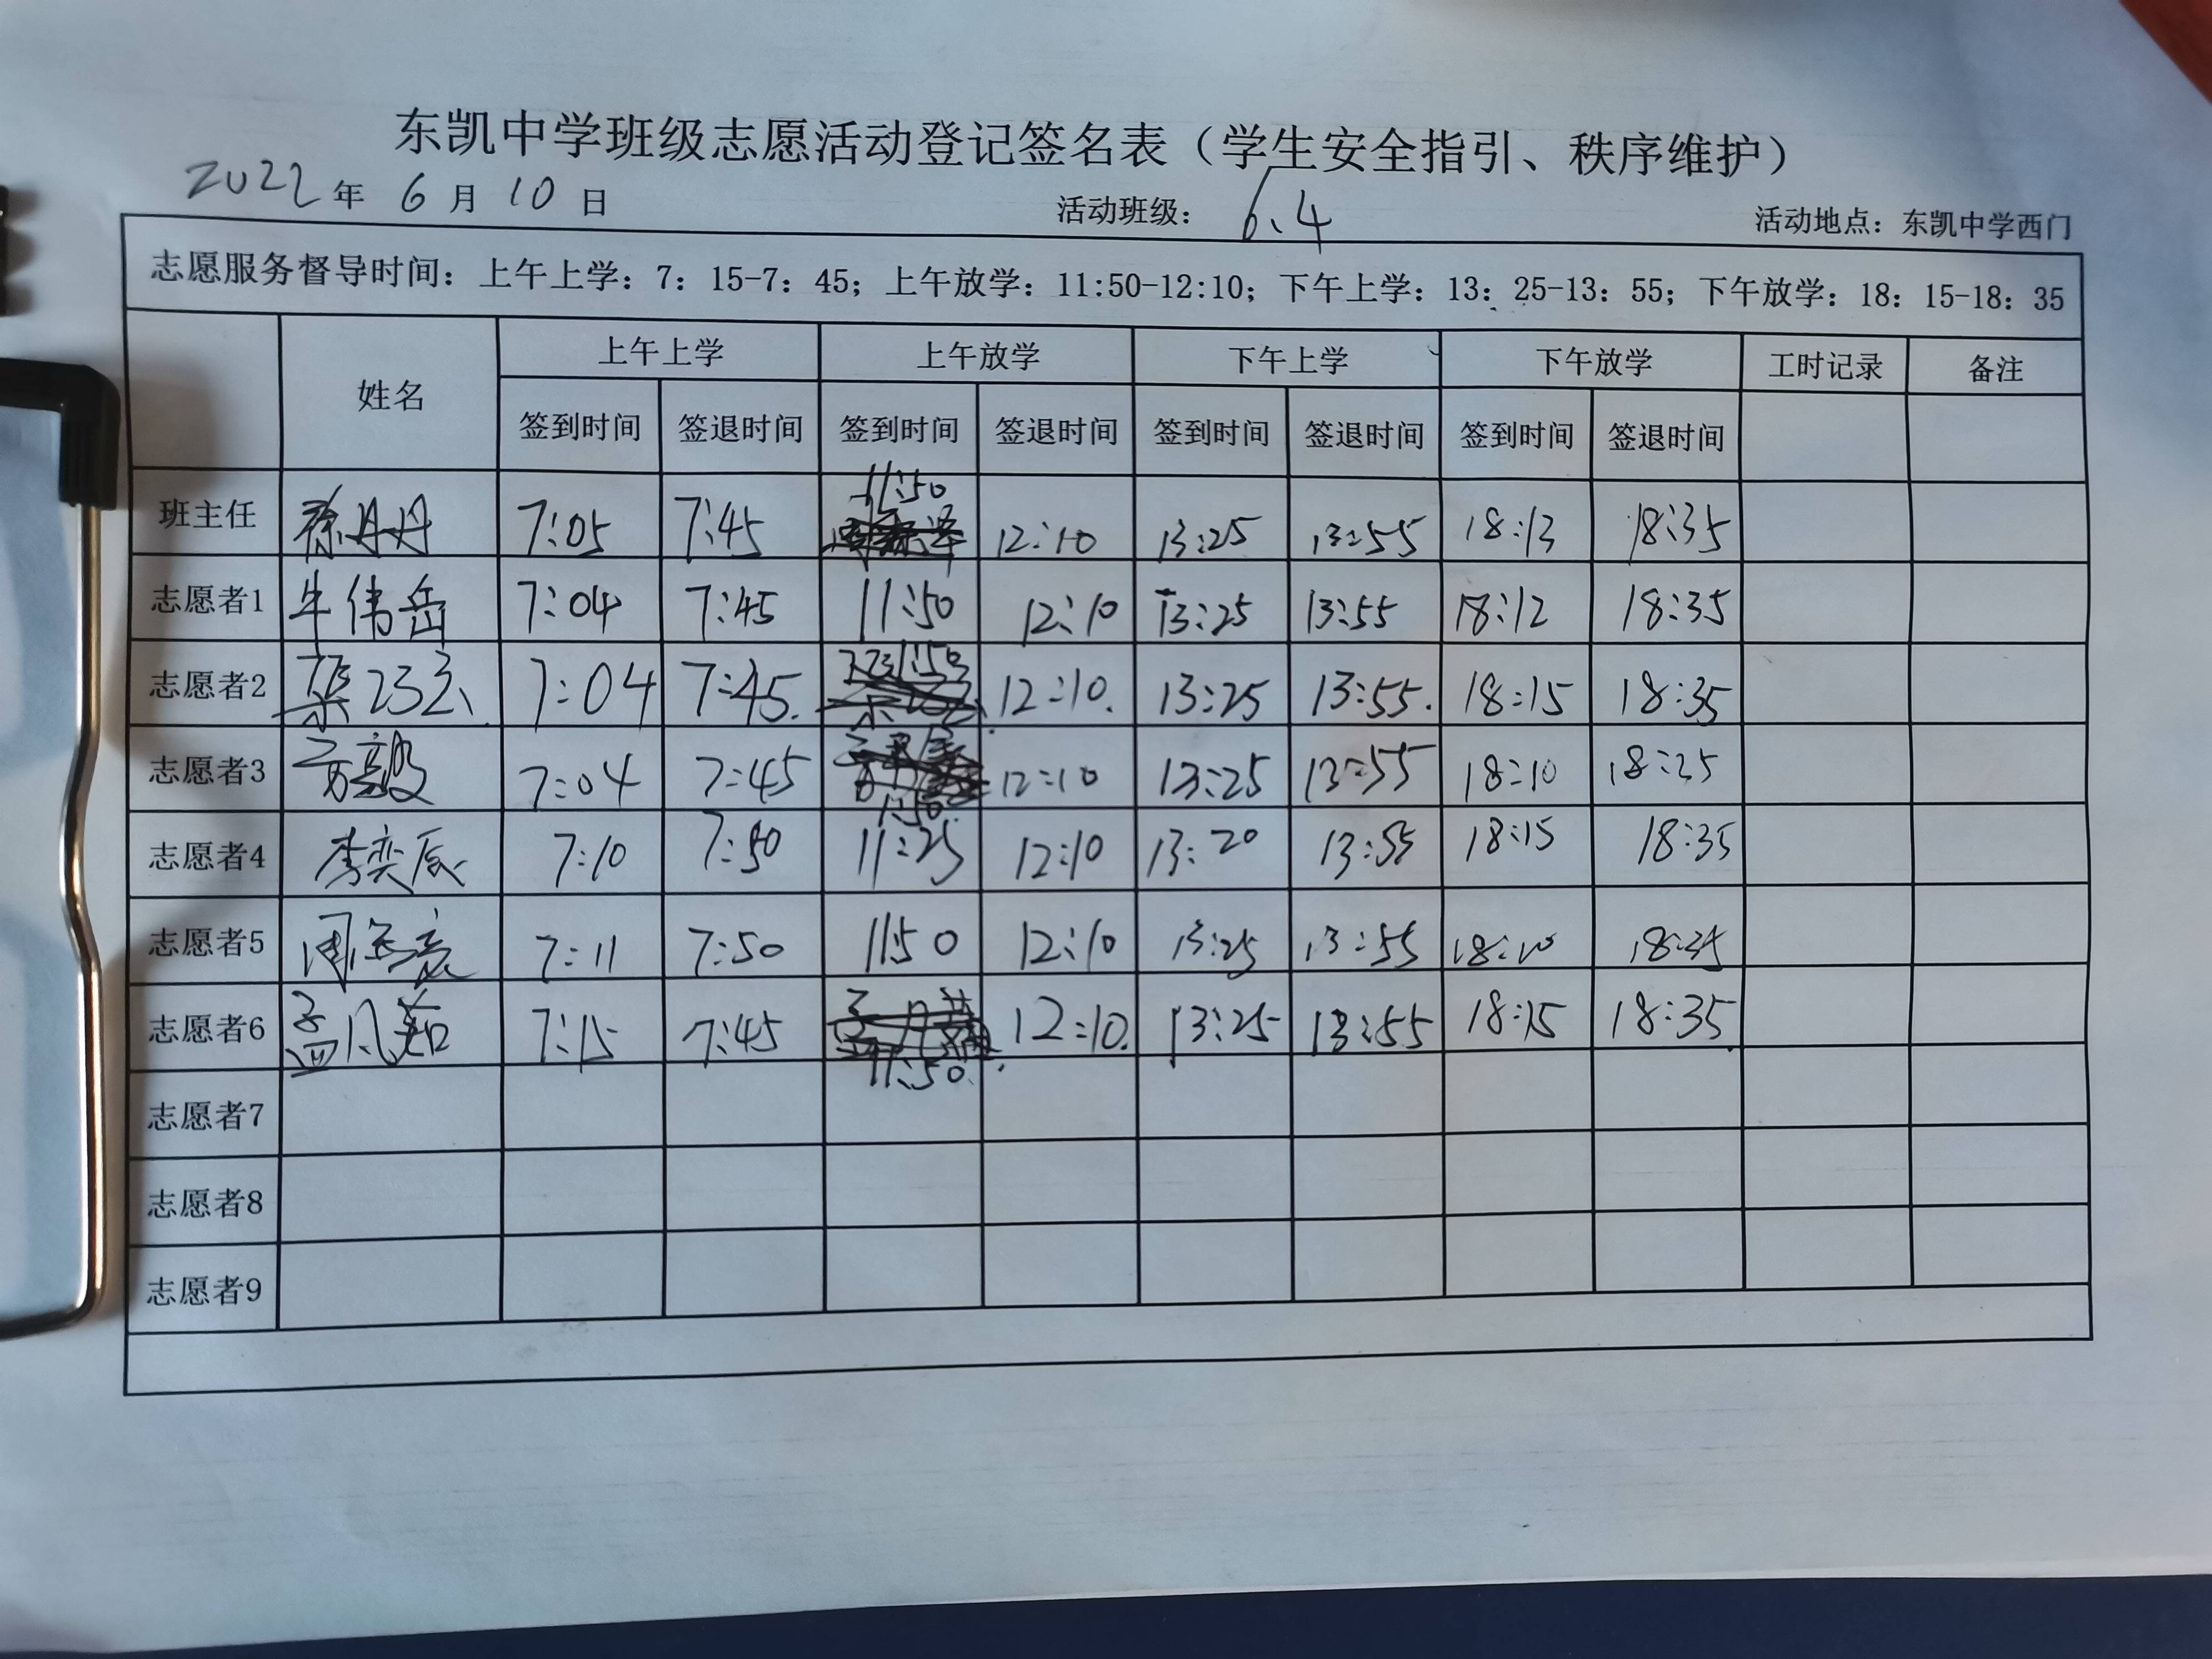 东凯中学班级志愿活动登记签名表（学生安全指引、秩序维护）
2022年 6月 10日 活动班级： 6.4 活动地点：东凯中学西门
志愿服务督导时间：上午上学：7：15-7：45；上午放学：11:50-12:10；下午上学：13：25-13：55；下午放学：18：15-18：35
姓名 上午上学 上午放学 下午上学 下午放学 工时记录 备注
签到时间 签退时间 签到时间 签退时间 签到时间 签退时间 签到时间 签退时间
班主任 徐丹丹 7:05 7:45 11:50 12:10 13:25 13:55 18:13 18:35
志愿者1 牛伟岳 7:04 7:45 11:50 12:10 13:25 13:55 18:12 18:35
志愿者2 7:04 7:45. 12:10. 13:25 13:55. 18:15 18:35
志愿者3 7:04 7:45 12:10 13:25 13:55 18:10 18:25
志愿者4 李奕辰 7:10 7:50 11:25 12:10 13:20 13:55 18:15 18:35
志愿者5 7:11 7:50 11:50 12:10 13:25 13:55 18:10 18:35
志愿者6 7:15 7:45 11:50. 12:10. 13:25 13:55 18:15 18:35
志愿者7
志愿者8
志愿者9